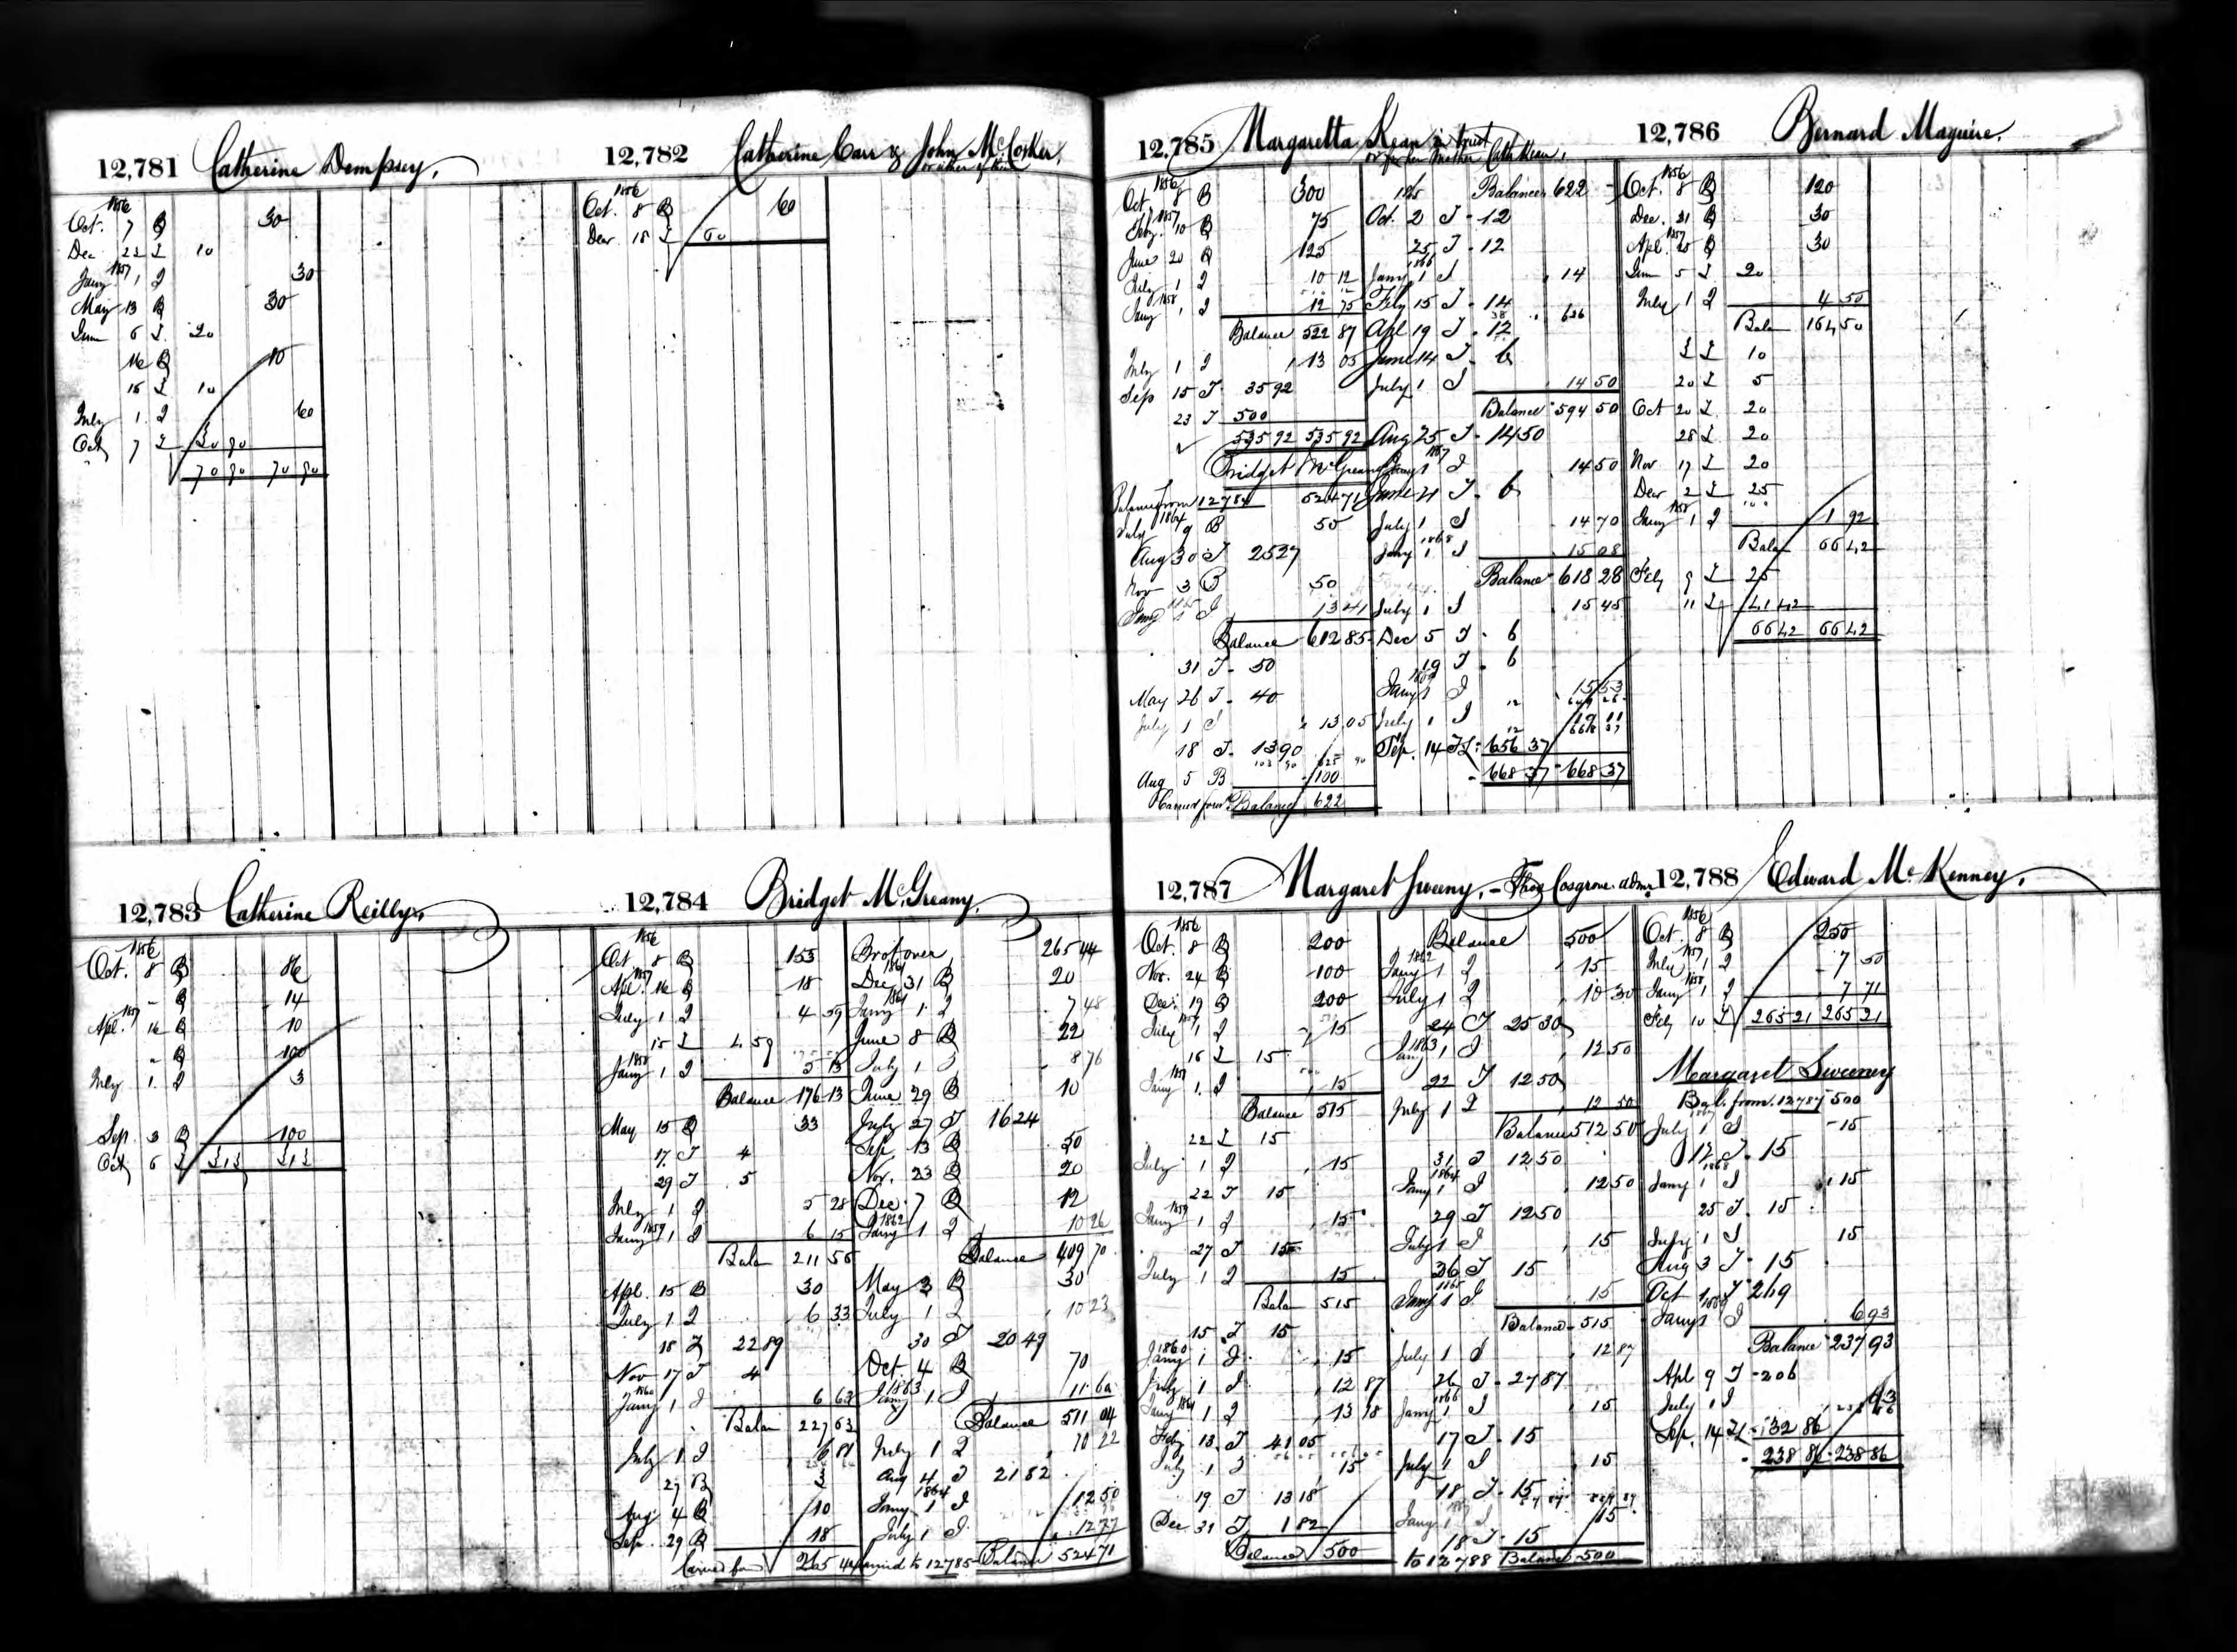 12,781 Catherine Dempsey.
1856
Oct. 7 B 30
Dec 22 T 10
1857
Jany 1 I 30
May 13 B 30
June 6 T 20
16 B 10
18 T 10
July 1 I 60
Oct 7 T 30 90
70 90 70 90
12,782 Catherine Carr & John McCosker,
or either of them
1856
Oct. 8 B 60
Decr 18 T 60
12,783 Catherine Reilly,
1856
Oct. 8 B 86
" B 14
1857
Apl. 16 B 10
" B 100
July 1 I 3
Sep 3 B 100
Oct 6 T 313 313
12,784 Bridget McGreany,
1856
Oct 8 B 153
1857
Apl. 16 B 18
July 1 I 4 59
15 T 4 59
1858
Jany 1 I 5 13
Balance 176 13
May 15 B 33
17 T 4
29 T 5
July 1 I 5 28
1859
Jany 1 I 6 15
Balan 211 56
Apl. 15 B 30
July 1 I 6 33
18 T 22 89
Nov 17 T 4
1860
Jany 1 I 6 63
Balan 227 63
July 1 I 6 81
27 B 3
Aug 4 B 10
Sep. 29 B 18
Carried forwd 265 44
Brot over 265 44
Dec 31 B 20
1861
Jany 1 I 7 48
June 8 B 22
July 1 I 8 76
June 29 B 10
July 27 T 16 24
Sep 13 B 50
Nov. 23 B 20
Dec. 7 B 12
1862
Jany 1 I 10 26
Balance 409 70
May 3 B 30
July 1 I 10 23
30 T 20 49
Oct. 4 B 70
1863
Jany 1 I 11 60
Balance 511 04
July 1 I 10 22
Aug 4 T 21 82
1864
Jany 1 I 12 50
July 1 I 12 77
carried to 12785 Balance 524 71
12,785 Margaretta Kean in trust
for her mother Cath Kean,
1856
Oct 8 B 300
1857
Feby. 10 B 75
June 20 B 125
July 1 I 10 12
1858
Jany 1 I 12 75
Balance 522 87
July 1 I 13 05
Sep 15 T 35 92
23 T 500
535 92 535 92
Bridget McGreany
Balance from 12784 524 71
1864
July 9 B 50
Aug 30 T 25 27
Nov 3 B 50
1865
Jany 1 I 13 41
Balance 612 85
31 T 50
May 26 T 40
July 1 I 13 05
18 T 13 90
Aug 5 B 100
Carried forwd Balance 622
1865 Balance 622
Oct. 2 T 12
25 T 12
1866
Jany 1 I 14
Feby 15 T 14
Apl 19 T 12
June 14 T 6
July 1 I 14 50
Balance 594 50
Aug 25 T 14 50
1867
Jany 1 I 14 50
June 21 T 6
July 1 I 14 70
1868
Jany 1 I 15 08
Balance 618 28
July 1 I 15 45
Dec 5 T 6
19 T 6
1869
Jany 1 I 15 53
July 1 I 19 11
Sep. 14 T 656 37
668 37 668 37
12,786 Bernard Maguire.
1856
Oct. 8 B 120
Dec. 31 B 30
1857
Apl. 25 B 30
June 5 T 20
July 1 I 4 50
Balan 164 50
T 10
20 T 5
Oct 20 T 20
28 T 20
Nov 17 T 20
Decr 2 T 25
1858
Jany 1 I 1 92
Balan 66 42
Feby 9 T 25
11 T 41 42
66 42 66 42
12,787 Margaret Sweeny, - Thos Cosgrove. admr
1856
Oct. 8 B 200
Nov. 24 B 100
Dec. 19 B 200
1857
July 1 I 15
16 T 15
1858
Jany 1 I 15
Balance 515
22 T 15
July 1 I 15
22 T 15
1859
Jany 1 I 15
27 T 15
July 1 I 15
Balan 515
15 T 15
1860
Jany 1 I 15
July 1 I 12 87
1861
Jany 1 I 13 18
Feby 13 T 41 05
July 1 I 15
19 T 13 18
Dec 31 T 1 82
Balance 500
Balance 500
1862
Jany 1 I 15
July 1 I 10 30
24 T 25 30
1863
Jany 1 I 12 50
22 T 12 50
July 1 I 12 50
Balance 512 50
31 T 12 50
1864
Jany 1 I 12 50
29 T 12 50
July 1 I 15
26 T 15
1865
Jany 1 I 15
Balance 515
July 1 I 12 87
26 T 27 87
1866
Jany 1 I 15
17 T 15
July 1 I 15
18 T 15
Jany 1 I 15
18 T 15
to 12788 Balance 500
12,788 Edward McKenney,
1856
Oct. 8 B 250
1857
July 1 I 7 50
1858
Jany 1 I 7 71
Feby 10 T 265 21 265 21
Margaret Sweeney
Bal. from 12787 500
July 1 I 15
12 T 15
1868
Jany 1 I 15
25 T 15
July 1 I 15
Aug 3 T 15
Oct 1 T 269
1869
Jany 1 I 6 93
Balance 237 93
Apl 9 T 206
July 1 I 93
Sep. 14 T 32 86
238 86 238 86